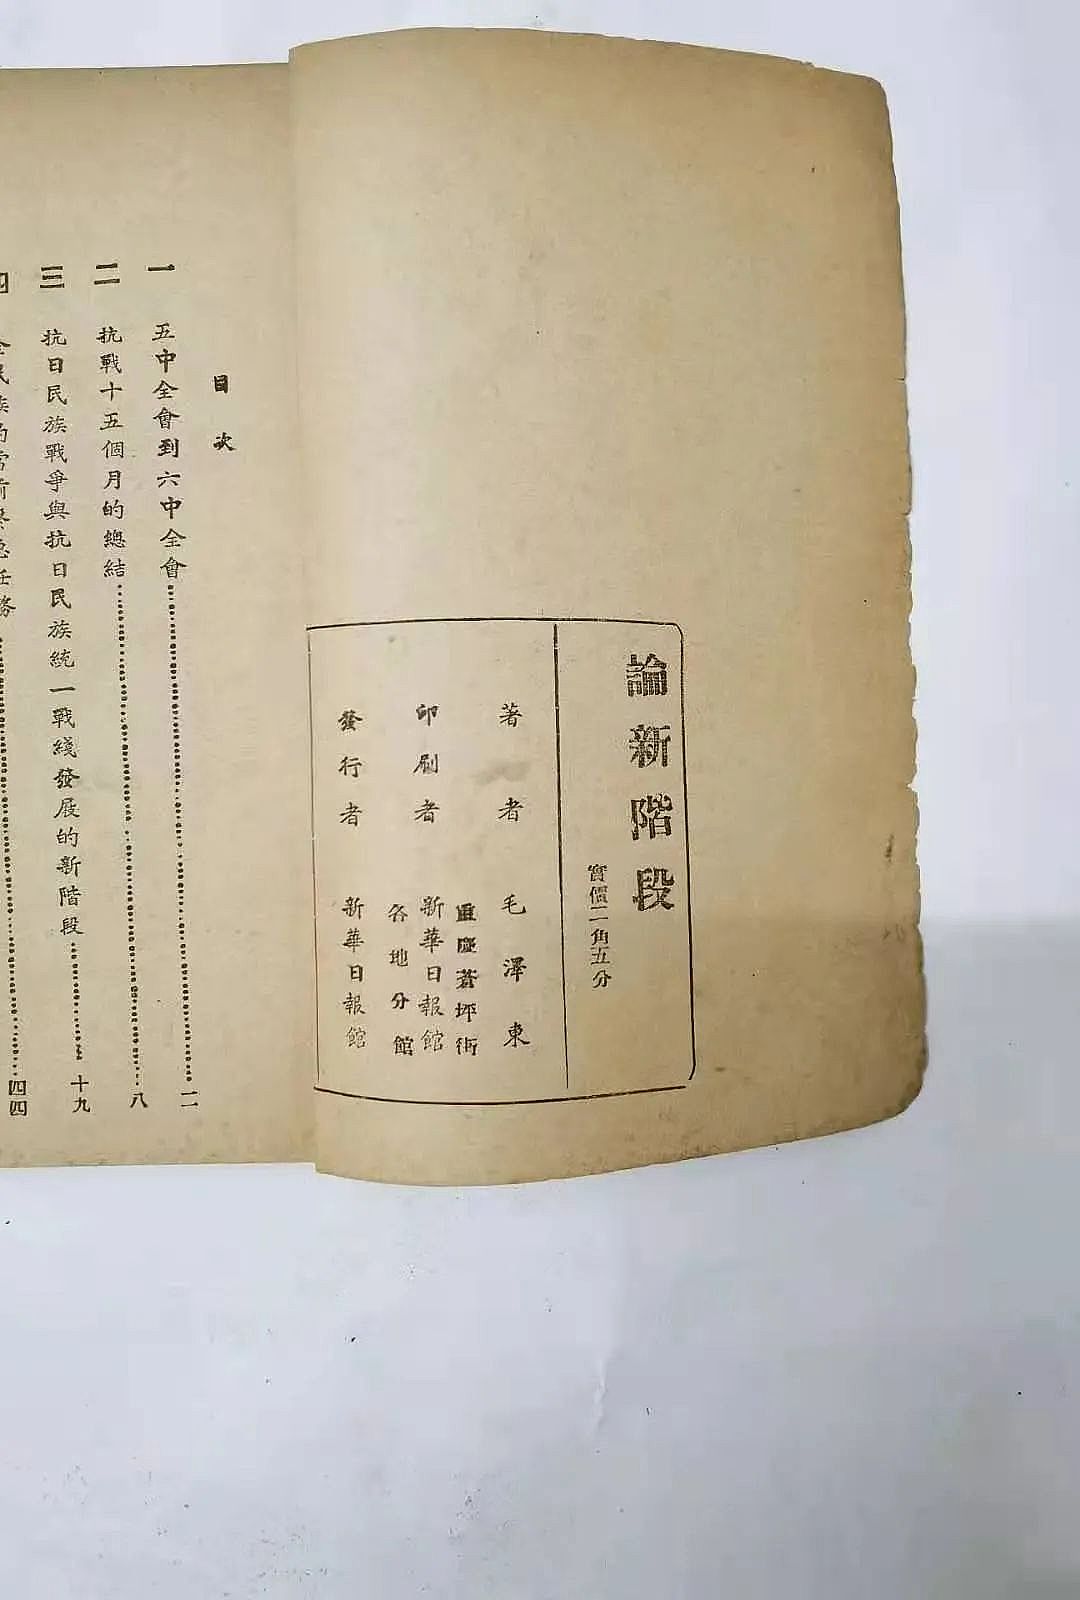 論新階段
實價二角五分
著者 毛澤東
重慶蒼坪街
印刷者 新華日報館
各地分館
發行者 新華日報館
目次
一 五中全會到六中全會 二
二 抗戰十五個月的總結 八
三 抗日民族戰爭與抗日民族統一戰綫發展的新階段 十九
四 全民族的當前緊急任務 四四